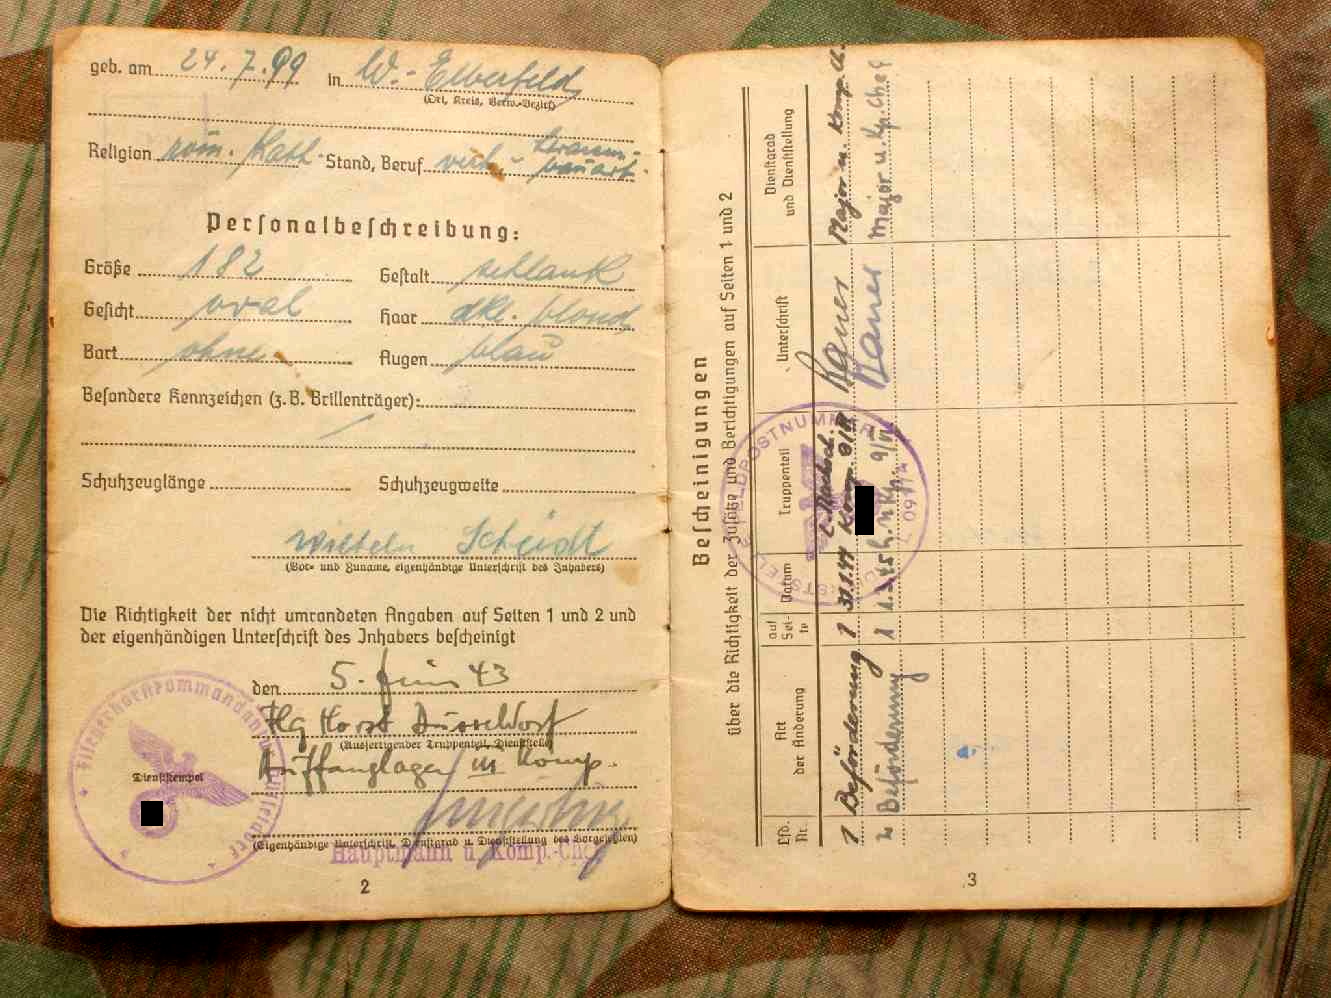 geb. am 24.7.99 in W.-Elberfeld
(Ort, Kreis, Verw.-Bezirk)
Religion röm. Kath. Stand, Beruf verh.
Personalbeschreibung:
Größe 182 Gestalt schlank
Gesicht oval Haar dkl. blond
Bart ohne Augen blau
Besondere Kennzeichen (z.B. Brillenträger):
Schuhzeuglänge Schuhzeugweite
Wilhelm Scheidt
(Vor- und Zuname, eigenhändige Unterschrift des Inhabers)
Die Richtigkeit der nicht umrandeten Angaben auf Seiten 1 und 2 und
der eigenhändigen Unterschrift des Inhabers bescheinigt
den 5. Juni 43
Flg Horst Düsseldorf
(Ausfertigender Truppenteil, Dienststelle)
Auffanglager III Komp.
Dienststempel
(Eigenhändige Unterschrift, Dienstgrad u. Dienststellung des Vorgesetzten)
Hauptmann u. Komp.-Chef
Fliegerhorstkommandantur Düsseldorf
2
Bescheinigungen
über die Richtigkeit der Zusätze und Berichtigungen auf Seiten 1 und 2
Lfd. Nr. Art der Änderung auf Seite Datum Truppenteil Unterschrift Dienstgrad und Dienststellung
1 Beförderung 1 Major u. Komp. Ch.
2 Beförderung 1 9/VI Major u. Kp. Chef
FELDPOSTNUMMER
3